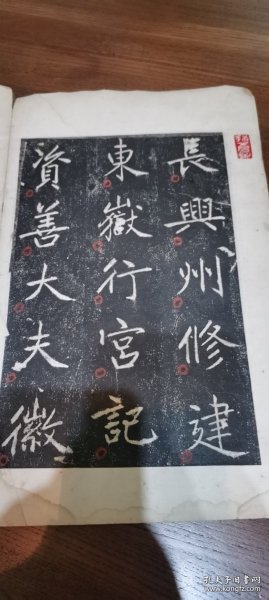 長興州修建
東嶽行宮記
資善大夫徽
孔夫子旧书网